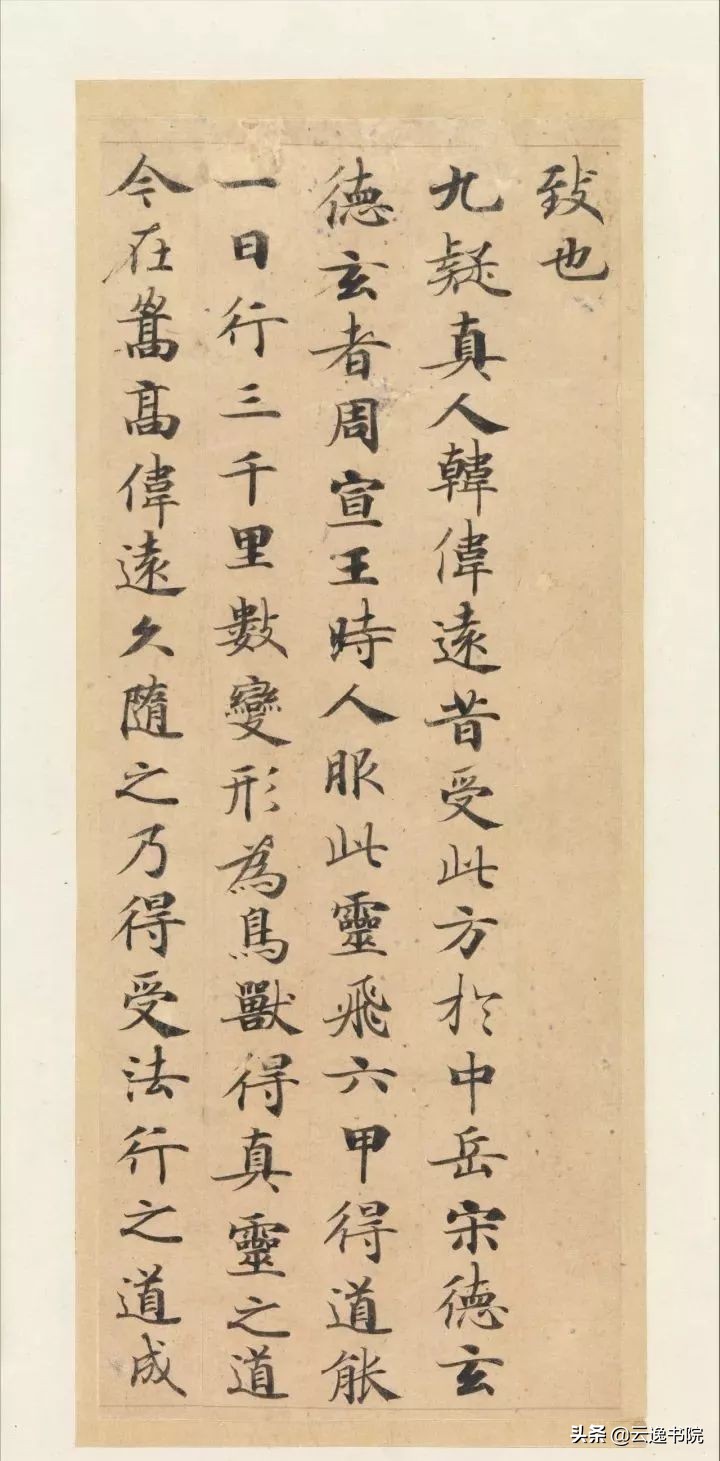 致也
九疑真人韓偉遠昔受此方於中岳宋德玄
德玄者周宣王時人服此靈飛六甲得道能
一日行三千里數變形為鳥獸得真靈之道
今在嵩高偉遠久隨之乃得受法行之道成
头条@云逸书院